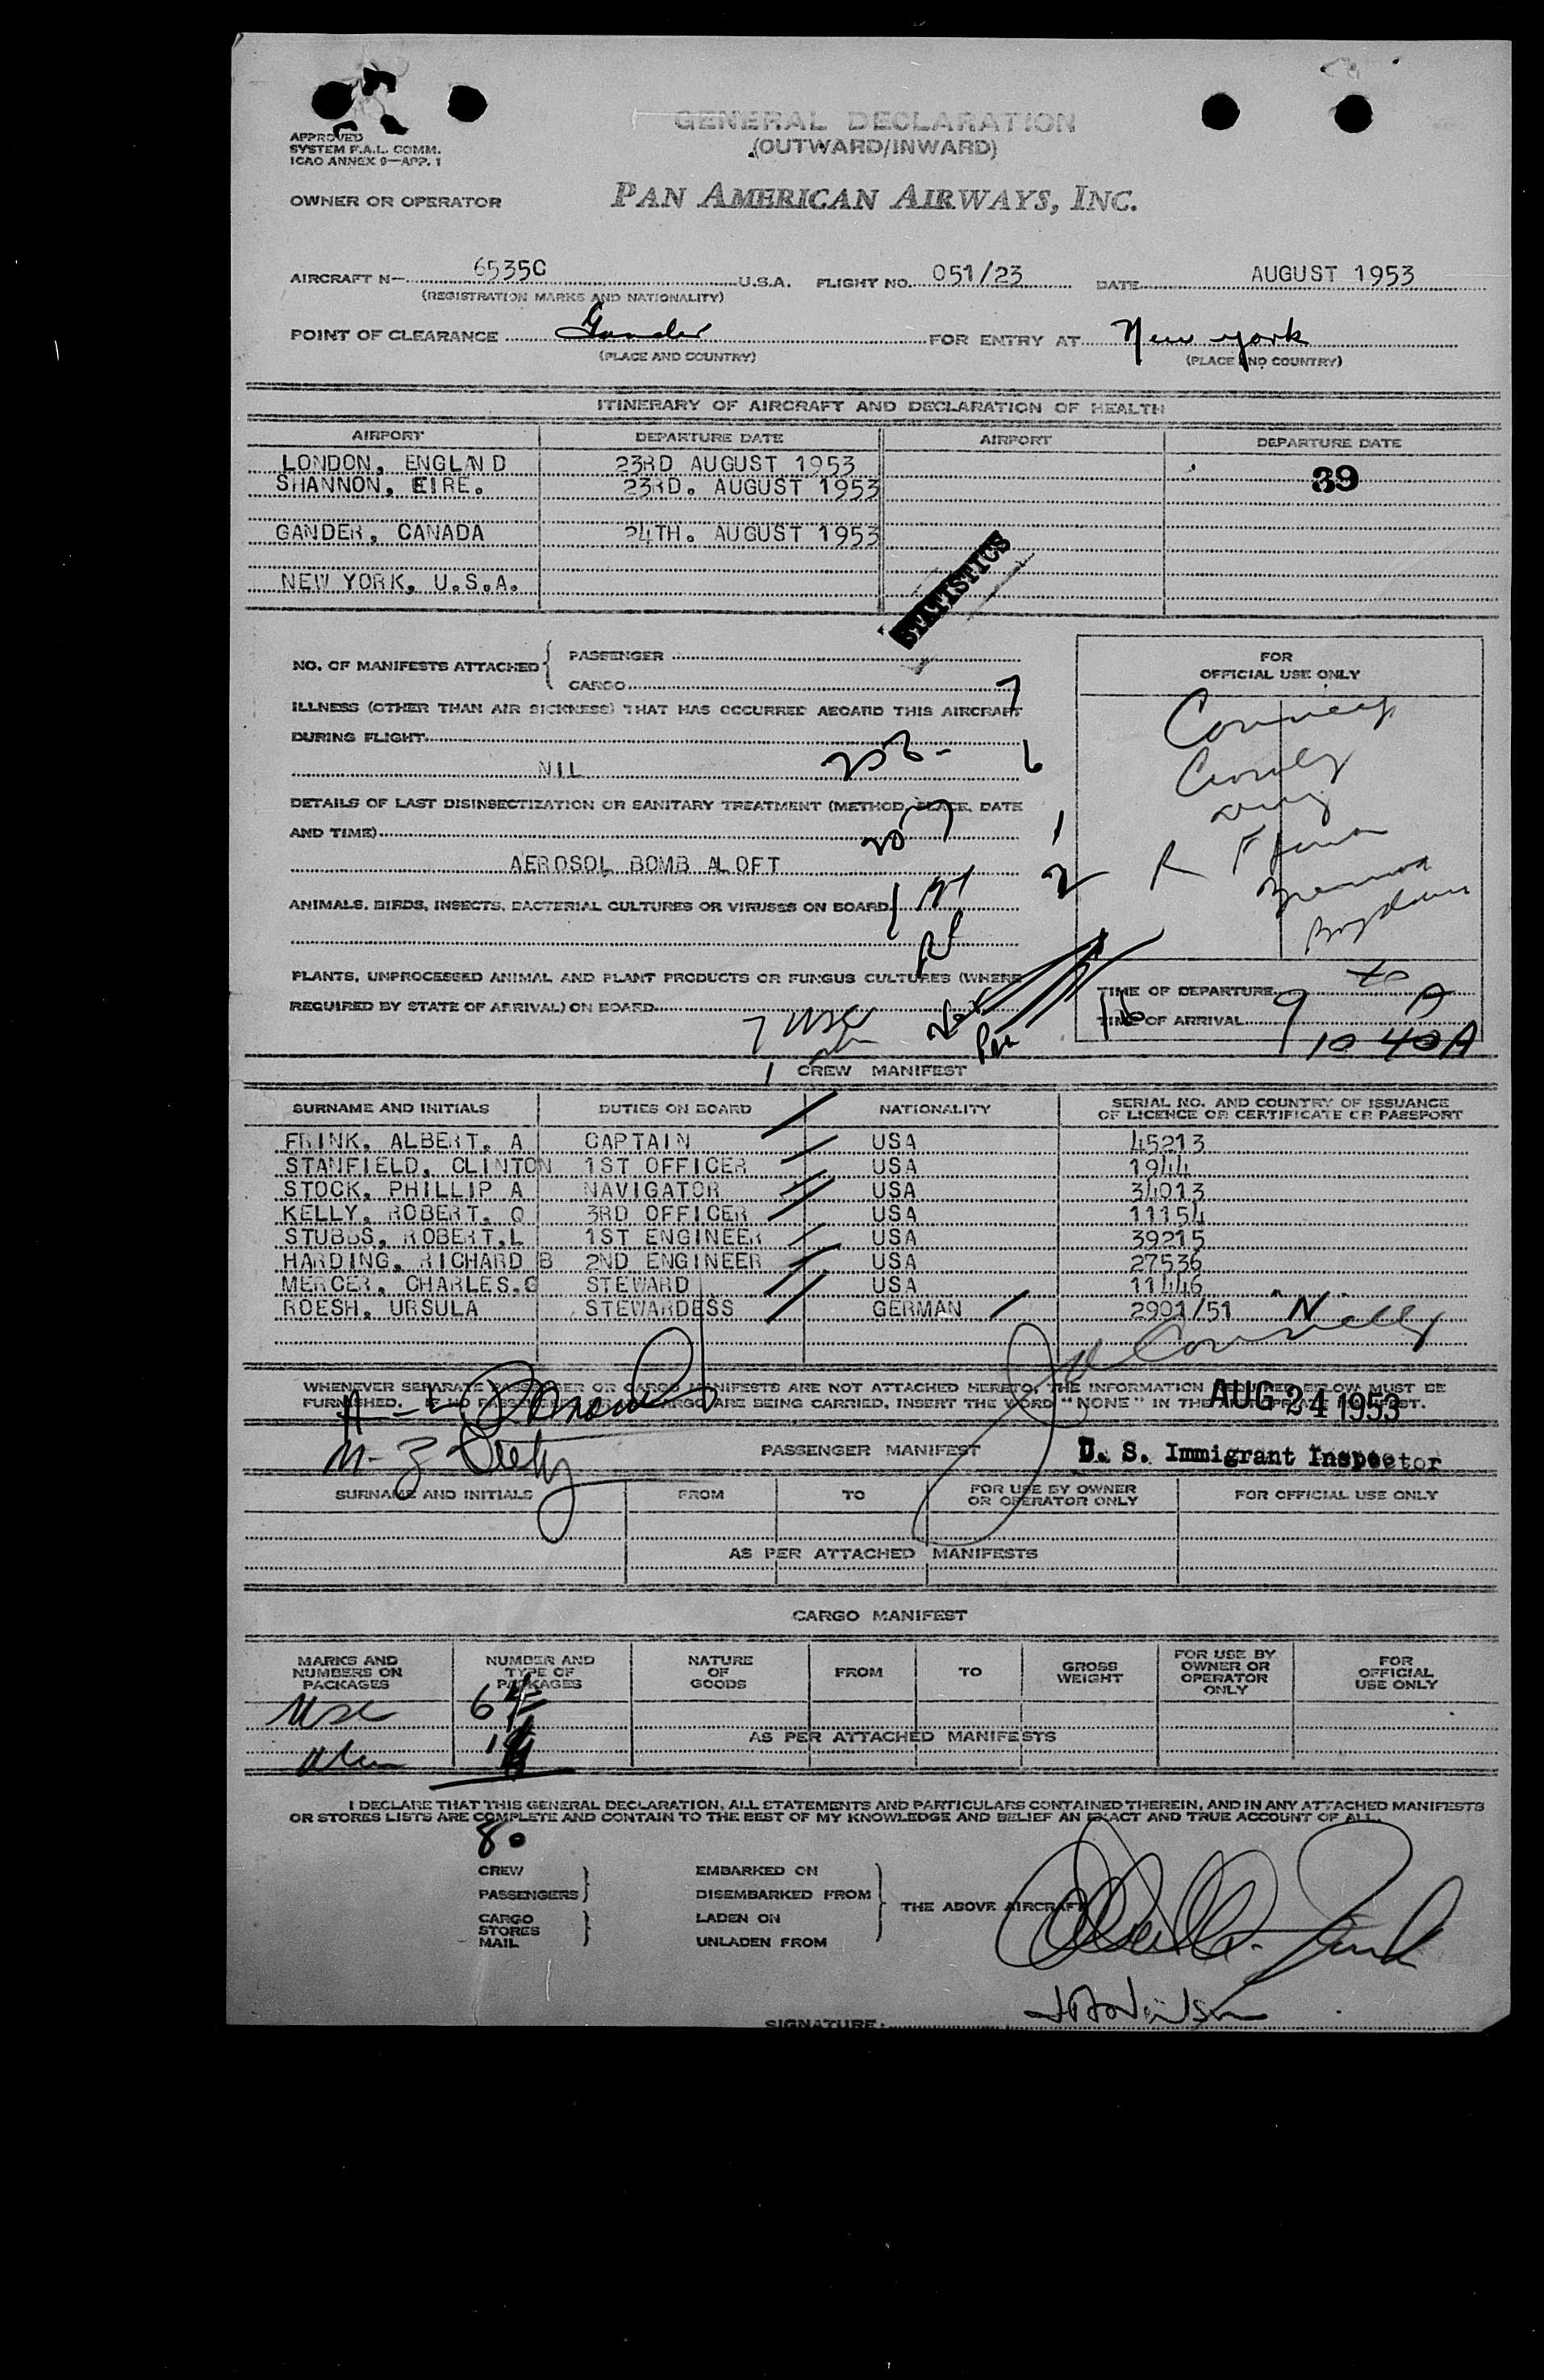 APPROVED
SYSTEM F.A.L. COMM.
ICAO ANNEX 9—APP. 1
GENERAL DECLARATION
(OUTWARD/INWARD)
OWNER OR OPERATOR PAN AMERICAN AIRWAYS, INC.
AIRCRAFT N— 6535C U.S.A. FLIGHT NO. 051/23 DATE AUGUST 1953
(REGISTRATION MARKS AND NATIONALITY)
POINT OF CLEARANCE Gander FOR ENTRY AT New York
(PLACE AND COUNTRY) (PLACE AND COUNTRY)
ITINERARY OF AIRCRAFT AND DECLARATION OF HEALTH
AIRPORT DEPARTURE DATE AIRPORT DEPARTURE DATE
LONDON, ENGLAND 23RD AUGUST 1953
SHANNON, EIRE. 23RD. AUGUST 1953 39
GANDER, CANADA 24TH. AUGUST 1953
NEW YORK, U.S.A.
STATISTICS
NO. OF MANIFESTS ATTACHED PASSENGER
CARGO 7
FOR
OFFICIAL USE ONLY
ILLNESS (OTHER THAN AIR SICKNESS) THAT HAS OCCURRED ABOARD THIS AIRCRAFT
DURING FLIGHT
NIL 6
DETAILS OF LAST DISINSECTIZATION OR SANITARY TREATMENT (METHOD, PLACE, DATE
AND TIME) 1
AEROSOL BOMB ALOFT 2 R
ANIMALS, BIRDS, INSECTS, BACTERIAL CULTURES OR VIRUSES ON BOARD
PLANTS, UNPROCESSED ANIMAL AND PLANT PRODUCTS OR FUNGUS CULTURES (WHERE
REQUIRED BY STATE OF ARRIVAL) ON BOARD
TIME OF DEPARTURE
TIME OF ARRIVAL 9 A
10 40 A
7 USC
1
CREW MANIFEST
SURNAME AND INITIALS DUTIES ON BOARD NATIONALITY SERIAL NO. AND COUNTRY OF ISSUANCE
OF LICENCE OR CERTIFICATE OR PASSPORT
FRINK, ALBERT, A CAPTAIN USA 45213
STANFIELD, CLINTON 1ST OFFICER USA 1944
STOCK, PHILLIP A NAVIGATOR USA 34013
KELLY, ROBERT, Q 3RD OFFICER USA 11154
STUBBS, ROBERT,L 1ST ENGINEER USA 39215
HARDING, RICHARD B 2ND ENGINEER USA 27536
MERCER, CHARLES.G STEWARD USA 11446
ROESH, URSULA STEWARDESS GERMAN 2901/51 "N"
WHENEVER SEPARATE PASSENGER OR CARGO MANIFESTS ARE NOT ATTACHED HERETO, THE INFORMATION REQUIRED BELOW MUST BE
FURNISHED. IF NO PASSENGERS OR CARGO ARE BEING CARRIED, INSERT THE WORD "NONE" IN THE APPROPRIATE MANIFEST.
AUG 24 1953
PASSENGER MANIFEST
U. S. Immigrant Inspector
SURNAME AND INITIALS FROM TO FOR USE BY OWNER
OR OPERATOR ONLY FOR OFFICIAL USE ONLY
AS PER ATTACHED MANIFESTS
CARGO MANIFEST
MARKS AND
NUMBERS ON
PACKAGES NUMBER AND
TYPE OF
PACKAGES NATURE
OF
GOODS FROM TO GROSS
WEIGHT FOR USE BY
OWNER OR
OPERATOR
ONLY FOR
OFFICIAL
USE ONLY
USC
AS PER ATTACHED MANIFESTS
Alien
I DECLARE THAT THIS GENERAL DECLARATION, ALL STATEMENTS AND PARTICULARS CONTAINED THEREIN, AND IN ANY ATTACHED MANIFESTS
OR STORES LISTS ARE COMPLETE AND CONTAIN TO THE BEST OF MY KNOWLEDGE AND BELIEF AN EXACT AND TRUE ACCOUNT OF ALL.
80
CREW
PASSENGERS
CARGO
STORES
MAIL
EMBARKED ON
DISEMBARKED FROM
LADEN ON
UNLADEN FROM
THE ABOVE AIRCRAFT
SIGNATURE: